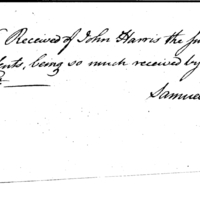 Received of John Harris the su
ents, being so much received by
Samuel